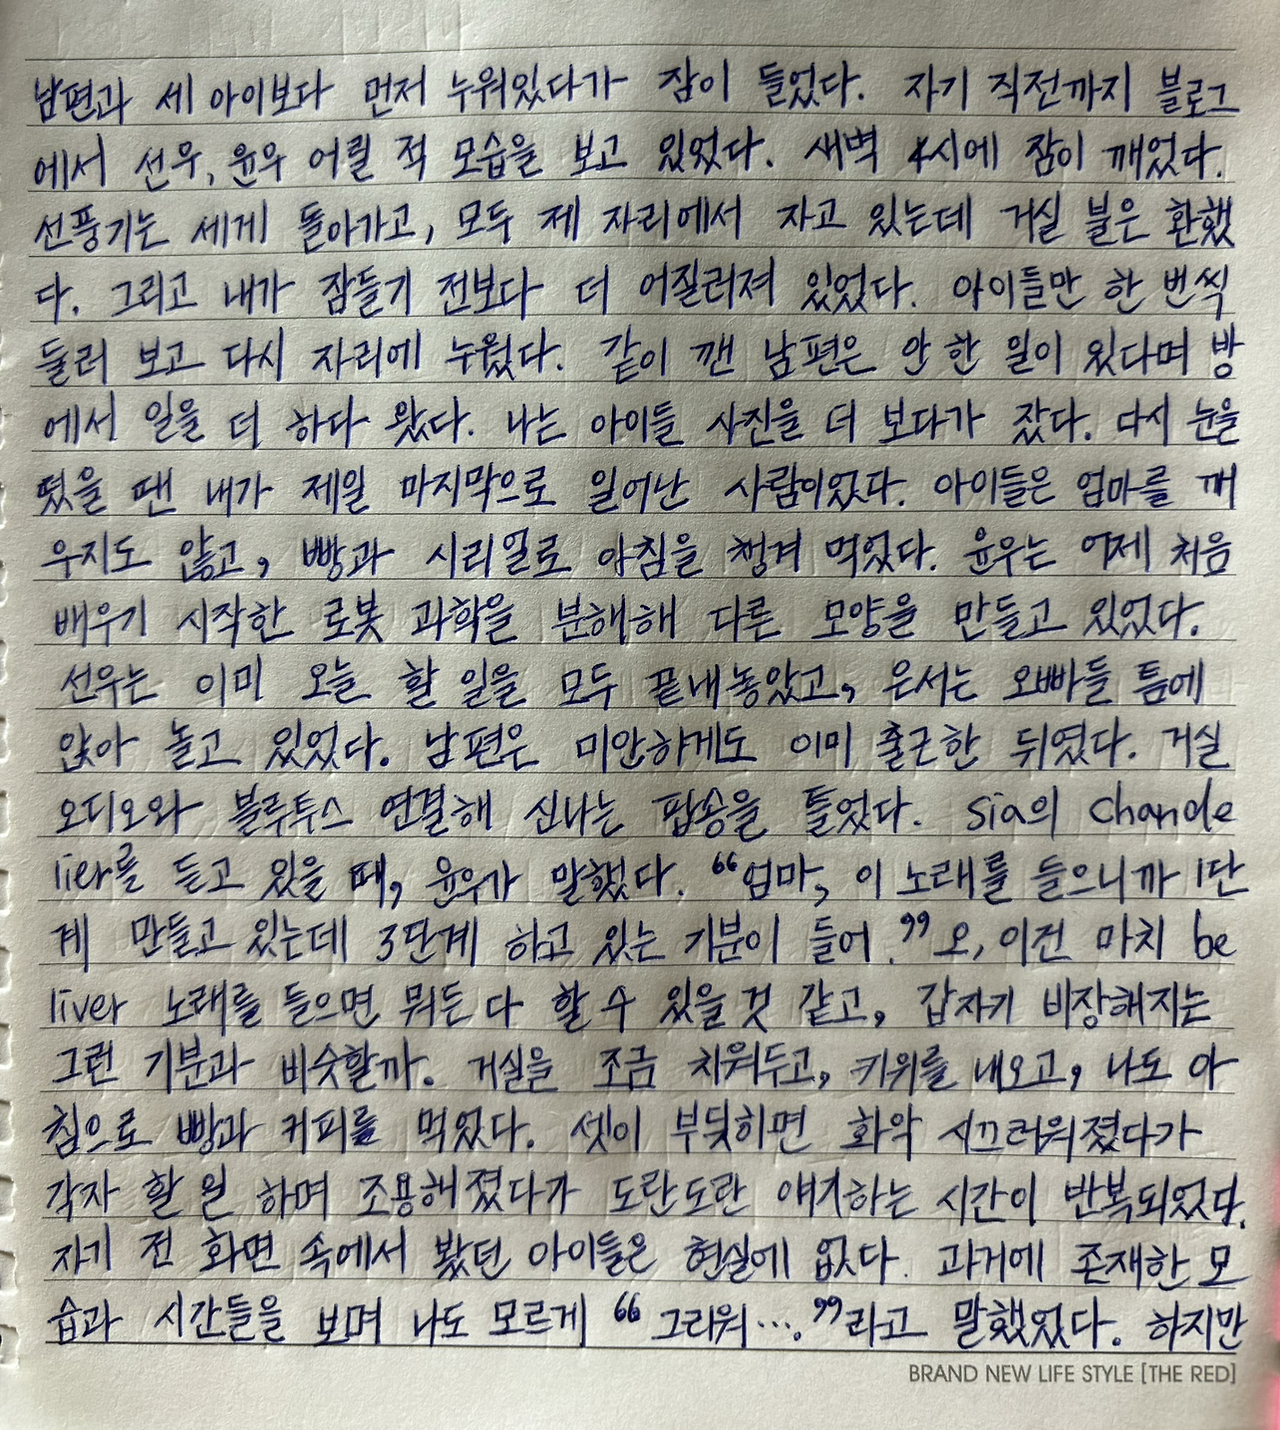 남편과 세 아이보다 먼저 누워있다가 잠이 들었다. 자기 직전까지 블로그
에서 선우, 윤우 어릴 적 모습을 보고 있었다. 새벽 4시에 잠이 깨었다.
선풍기는 세게 돌아가고, 모두 제 자리에서 자고 있는데 거실 불은 환했
다. 그리고 내가 잠들기 전보다 더 어질러져 있었다. 아이들만 한 번씩
둘러 보고 다시 자리에 누웠다. 같이 깬 남편은 안 한 일이 있다며 방
에서 일을 더 하다 왔다. 나는 아이들 사진을 더 보다가 잤다. 다시 눈을
떴을 땐 내가 제일 마지막으로 일어난 사람이었다. 아이들은 엄마를 깨
우지도 않고, 빵과 시리얼로 아침을 챙겨 먹었다. 윤우는 어제 처음
배우기 시작한 로봇 과학을 분해해 다른 모양을 만들고 있었다.
선우는 이미 오늘 할 일을 모두 끝내놓았고, 은서는 오빠들 틈에
앉아 놀고 있었다. 남편은 미안하게도 이미 출근한 뒤였다. 거실
오디오와 블루투스 연결해 신나는 팝송을 틀었다. Sia의 Chande
lier를 듣고 있을 때, 윤우가 말했다. “엄마, 이 노래를 들으니까 1단
계 만들고 있는데 3단계 하고 있는 기분이 들어.” 오, 이건 마치 be
liver 노래를 들으면 뭐든 다 할 수 있을 것 같고, 갑자기 비장해지는
그런 기분과 비슷할까. 거실을 조금 치워두고, 키위를 내오고, 나도 아
침으로 빵과 커피를 먹었다. 셋이 부딪히면 화악 시끄러워졌다가
각자 할 일 하며 조용해졌다가 도란도란 얘기하는 시간이 반복되었다.
자기 전 화면 속에서 봤던 아이들은 현실에 없다. 과거에 존재한 모
습과 시간들을 보며 나도 모르게 “그리워….”라고 말했었다. 하지만
BRAND NEW LIFE STYLE [THE RED]